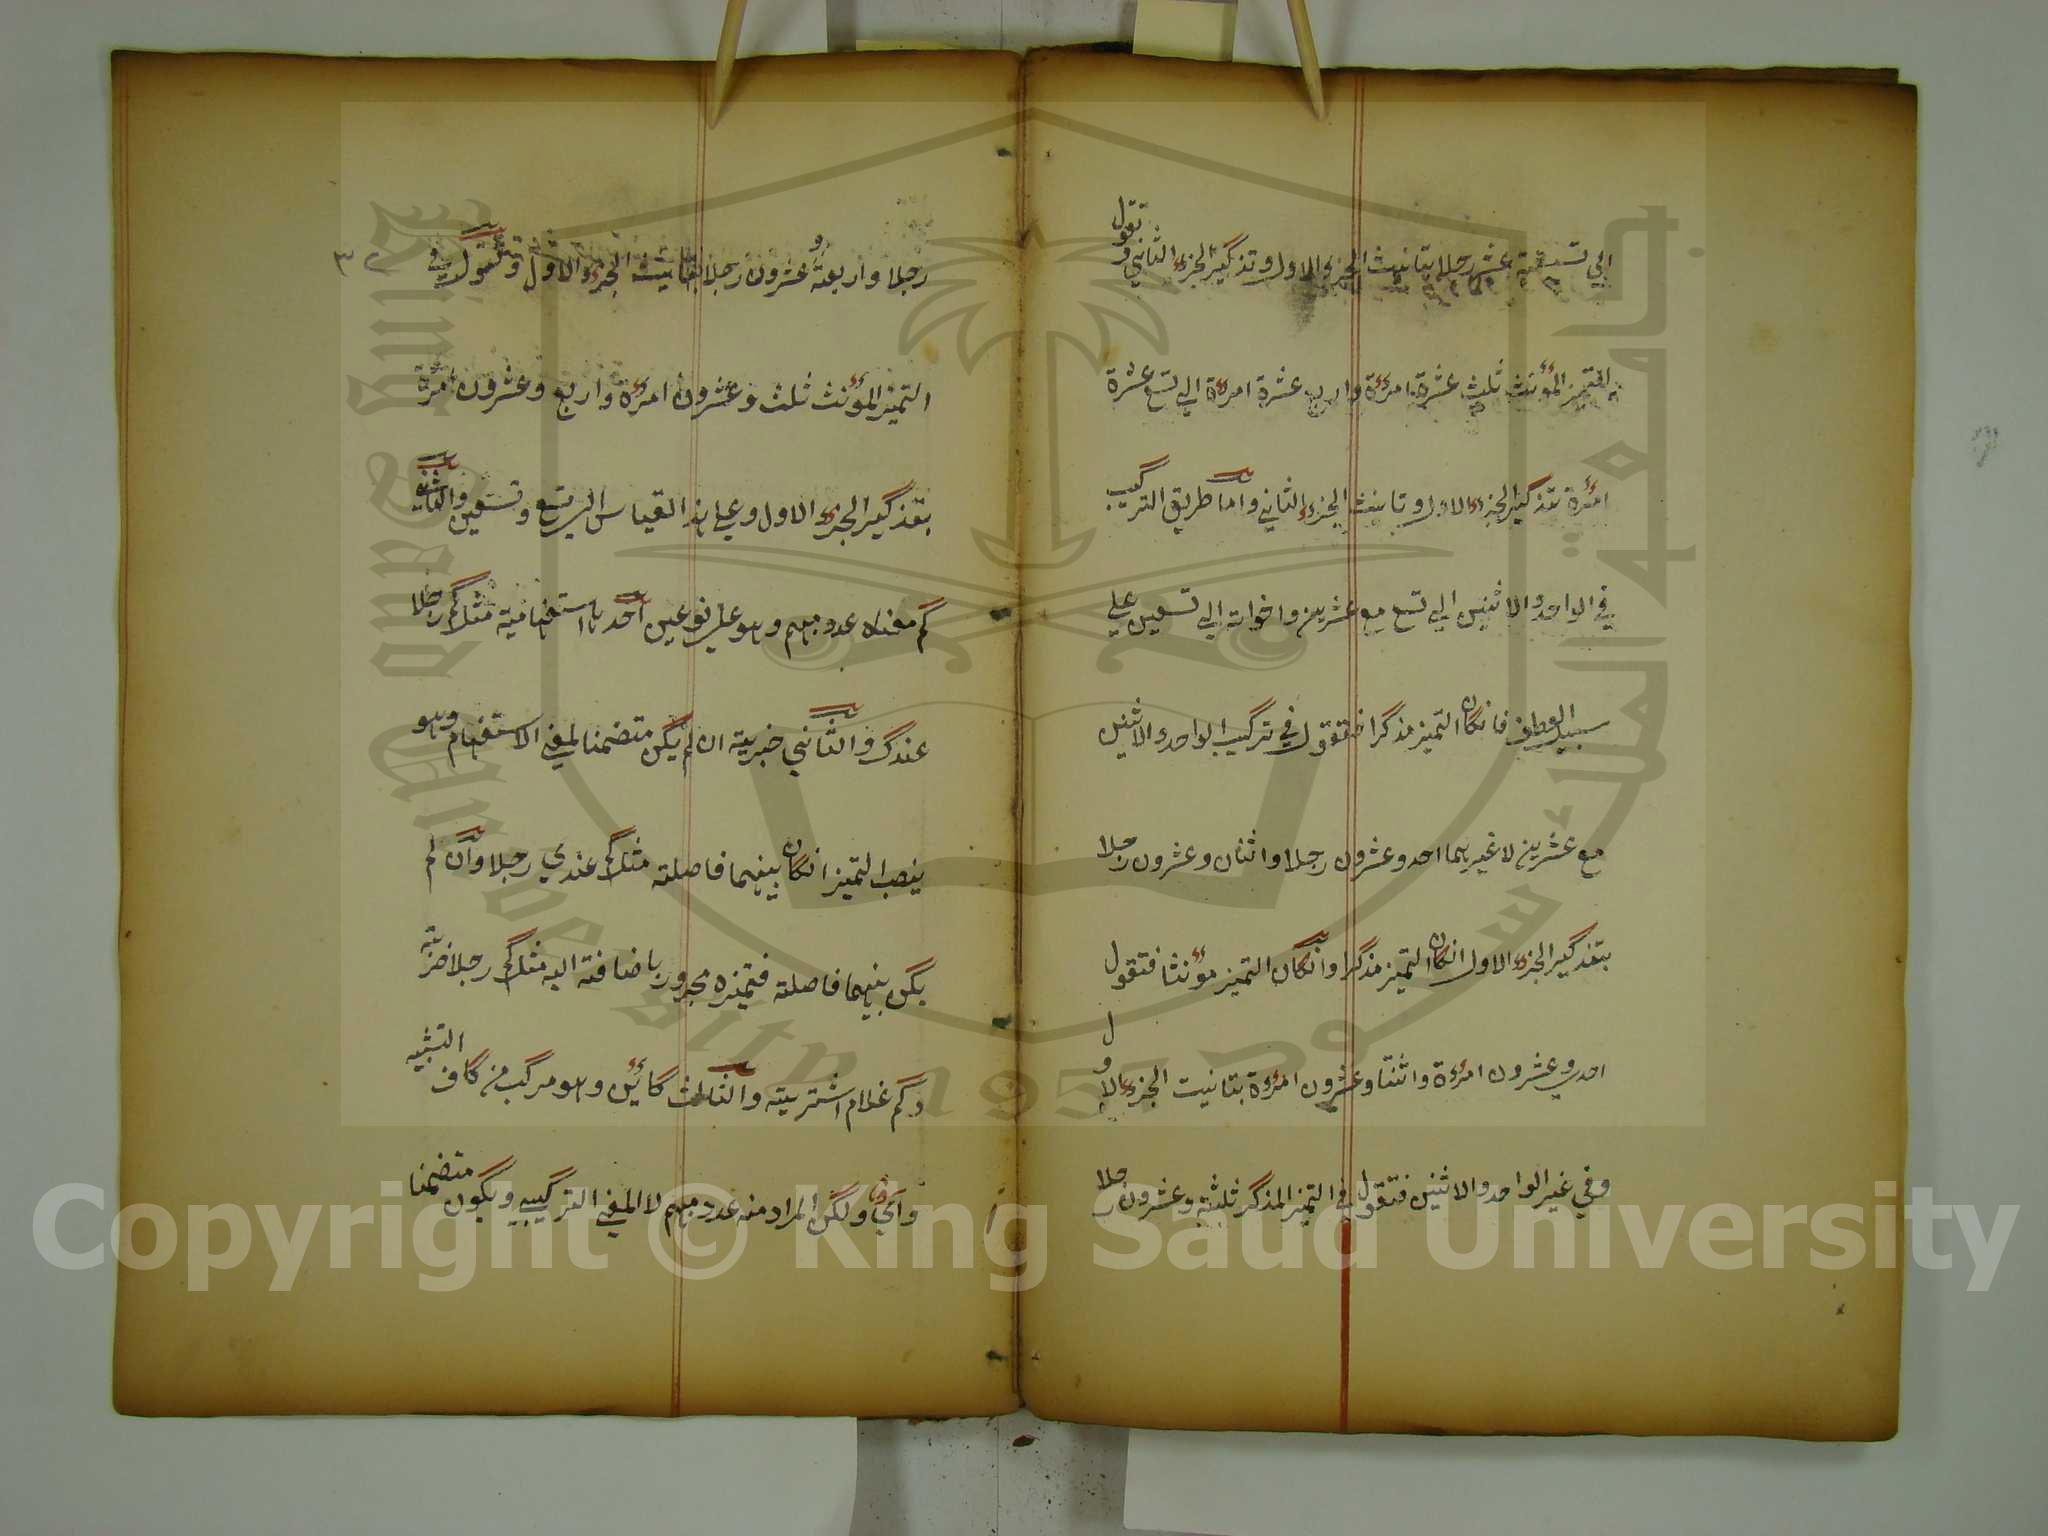 الي تسعة عشر رجلا بتانيث الجزء الاول وتذكير الجزء الثاني و تقول
في التميز المؤنث ثلث عشرة امرءة واربع عشرة امرءة الي تسع عشرة
امرءة بتذكير الجزء الاول وتانيث الجزء الثاني واما طريق التركيب
في الواحد والاثنين الي تسع مع عشرين واخواته الي تسعين علي
سبيل العطف فانكان التميز مذكرا فتقول في تركيب الواحد والاثنين
مع عشرين لا غيرهما احد وعشرون رجلا واثنان وعشرون رجلا
بتذكير الجزء الاول انكان التميز مذكرا وانكان التميز مؤنثا فتقول
احدي وعشرون امرءة واثنتا وعشرون امرءة بتانيث الجزء الاول
وفي غير الواحد والاثنين فتقول في التميز المذكر ثلثة وعشرون رجلا
رجلا واربعة وعشرون رجلا بتانيث الجزء الاول وتقول في
٣٢
التميز المؤنث ثلث وعشرون امرءة واربع وعشرون امرءة
بتذكير الجزء الاول وعلي هذا القياس الي تسع وتسعين والثاني
كم معناه عدد مبهم وهو علي نوعين احدها استفهامية مثل كم رجلا
عندك والثاني خبرية ان لم يكن متضمنا لمعني الاستفهام وهو
ينصب التميز انكان بينهما فاصلته مثل كم عندي رجلا وان لم
يكن بينهما فاصلته فتميزه مجرور باضافته اليه مثل كم رجلا ضربته
وكم غلام اشتريته والثالث كائن وهو مركب من كاف التشبيه
واي ولكن المراد منه عدد مبهم لا المعني التركيبي ويكون متضمنا
جامعة الملك سعود
King Saud University
1957
Copyright © King Saud University